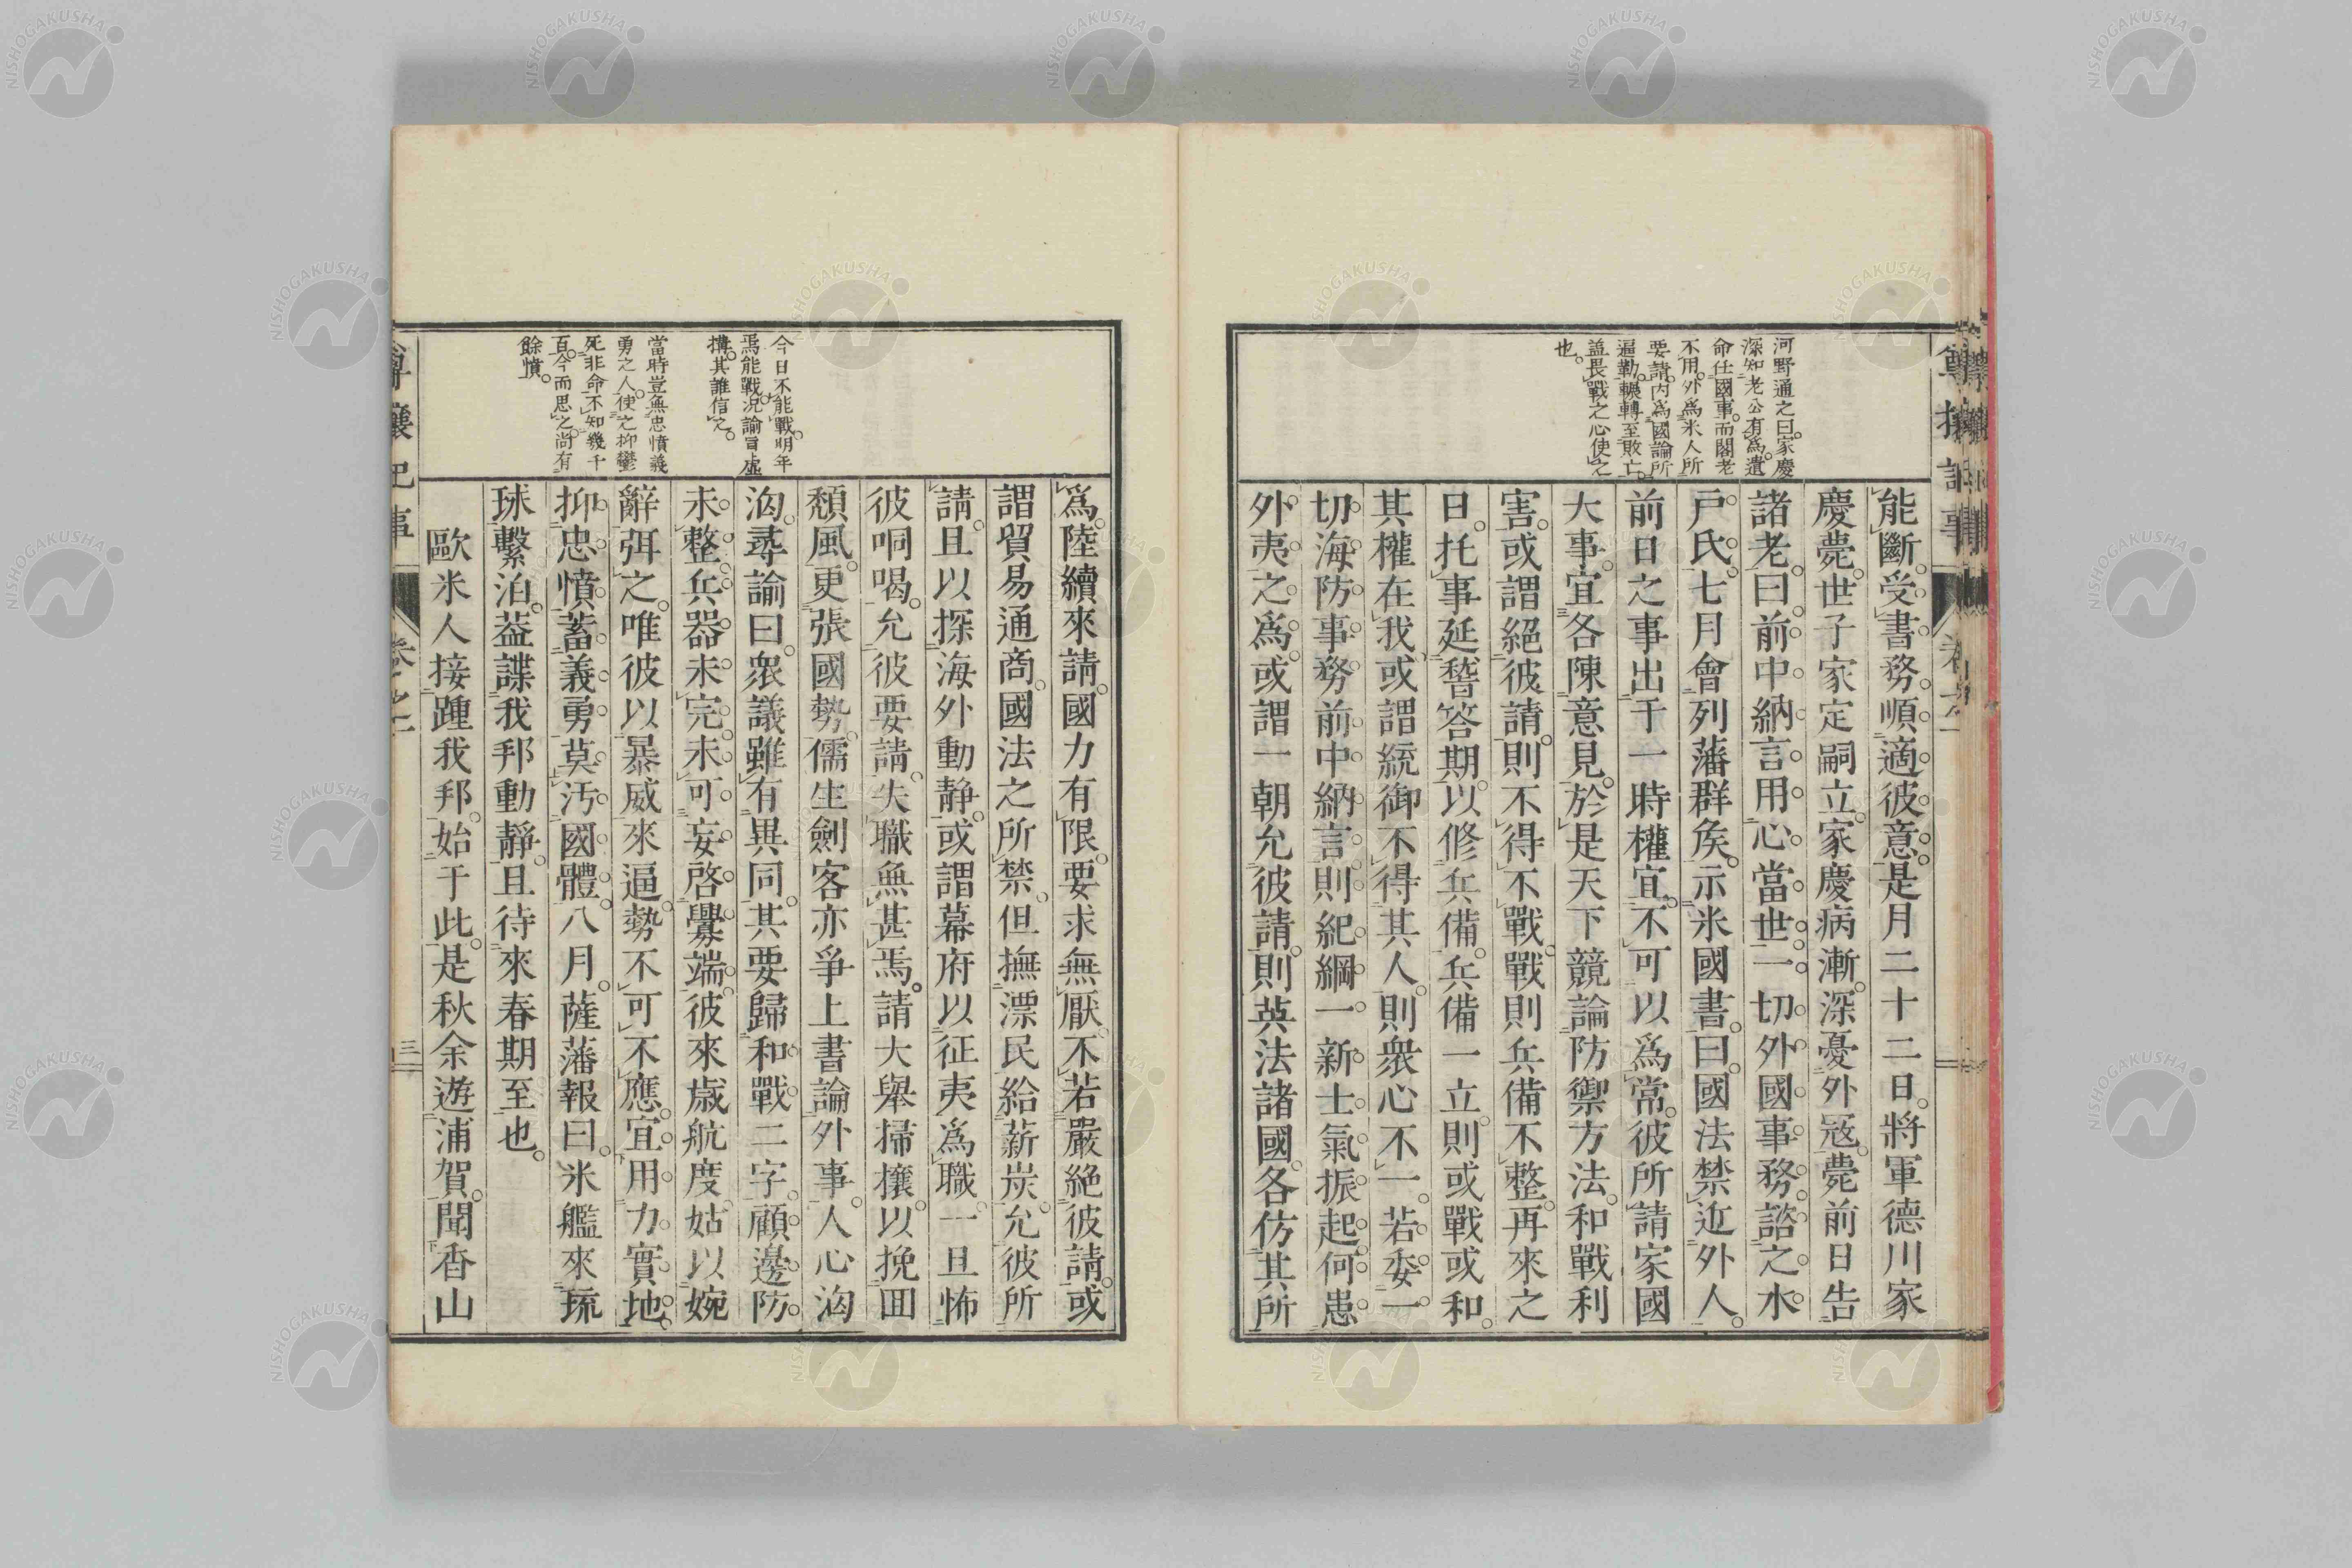 河野通之曰。家慶
深知老公有為。遺
命任國事。而閣老
不用。外為米人所
要請。内為國論所
逼勒。輾轉至敗亡。
蓋畏戰之心使之
也。
能斷。受書務順適彼意。是月二十二日。將軍德川家
慶薨。世子家定嗣立。家慶病漸。深憂外寇。薨前日告
諸老曰。前中納言用心當世。一切外國事務。諮之水
戶氏。七月會列藩群矦。示米國書。曰。國法禁近外人。
前日之事出于一時權宜。不可以爲常。彼所請家國
大事。宜各陳意見。於是天下競論防禦方法。和戰利
害。或謂絕彼請。則不得不戰。戰則兵備不整。再來之
日。托事延稽答期。以修兵備。兵備一立。則或戰或和。
其權在我。或謂統御不得其人。則衆心不一。若委一
切海防事務前中納言。則紀綱一新。士氣振起。何患
外夷之爲。或謂一朝允彼請。則英法諸國。各仿其所
尊攘紀事
今日不能戰。明年
焉能戰。況論冒虛
搆。其誰信之。
當時豈無忠憤義
勇之人。使之抑鬱
死非命。不知幾千
百。今而思之。尚有
餘憤。
爲。陸續來請。國力有限。要求無厭。不若嚴絕彼請。或
謂貿易通商。國法之所禁。但撫漂民給薪炭。允彼所
請。且以探海外動靜。或謂幕府以征夷爲職。一旦怖
彼哃喝。允彼要請。失職無甚焉。請大舉掃攘。以挽回
頽風。更張國勢。儒生劍客亦爭上書論外事。人心洶
洶。尋諭曰。衆議雖有異同。其要歸和戰二字。顧邊防
未整。兵器未完。未可妄啓釁端。彼來歲航度。姑以婉
辭弭之。唯彼以暴威來逼。勢不可不應。宜用力實地。
抑忠憤。蓄義勇。莫汚國體。八月。薩藩報曰。米艦來琉
球繫泊。蓋諜我邦動靜。且待來春期至也。
歐米人接踵我邦。始于此。是秋余遊浦賀。聞香山
尊攘紀事
卷之一
三